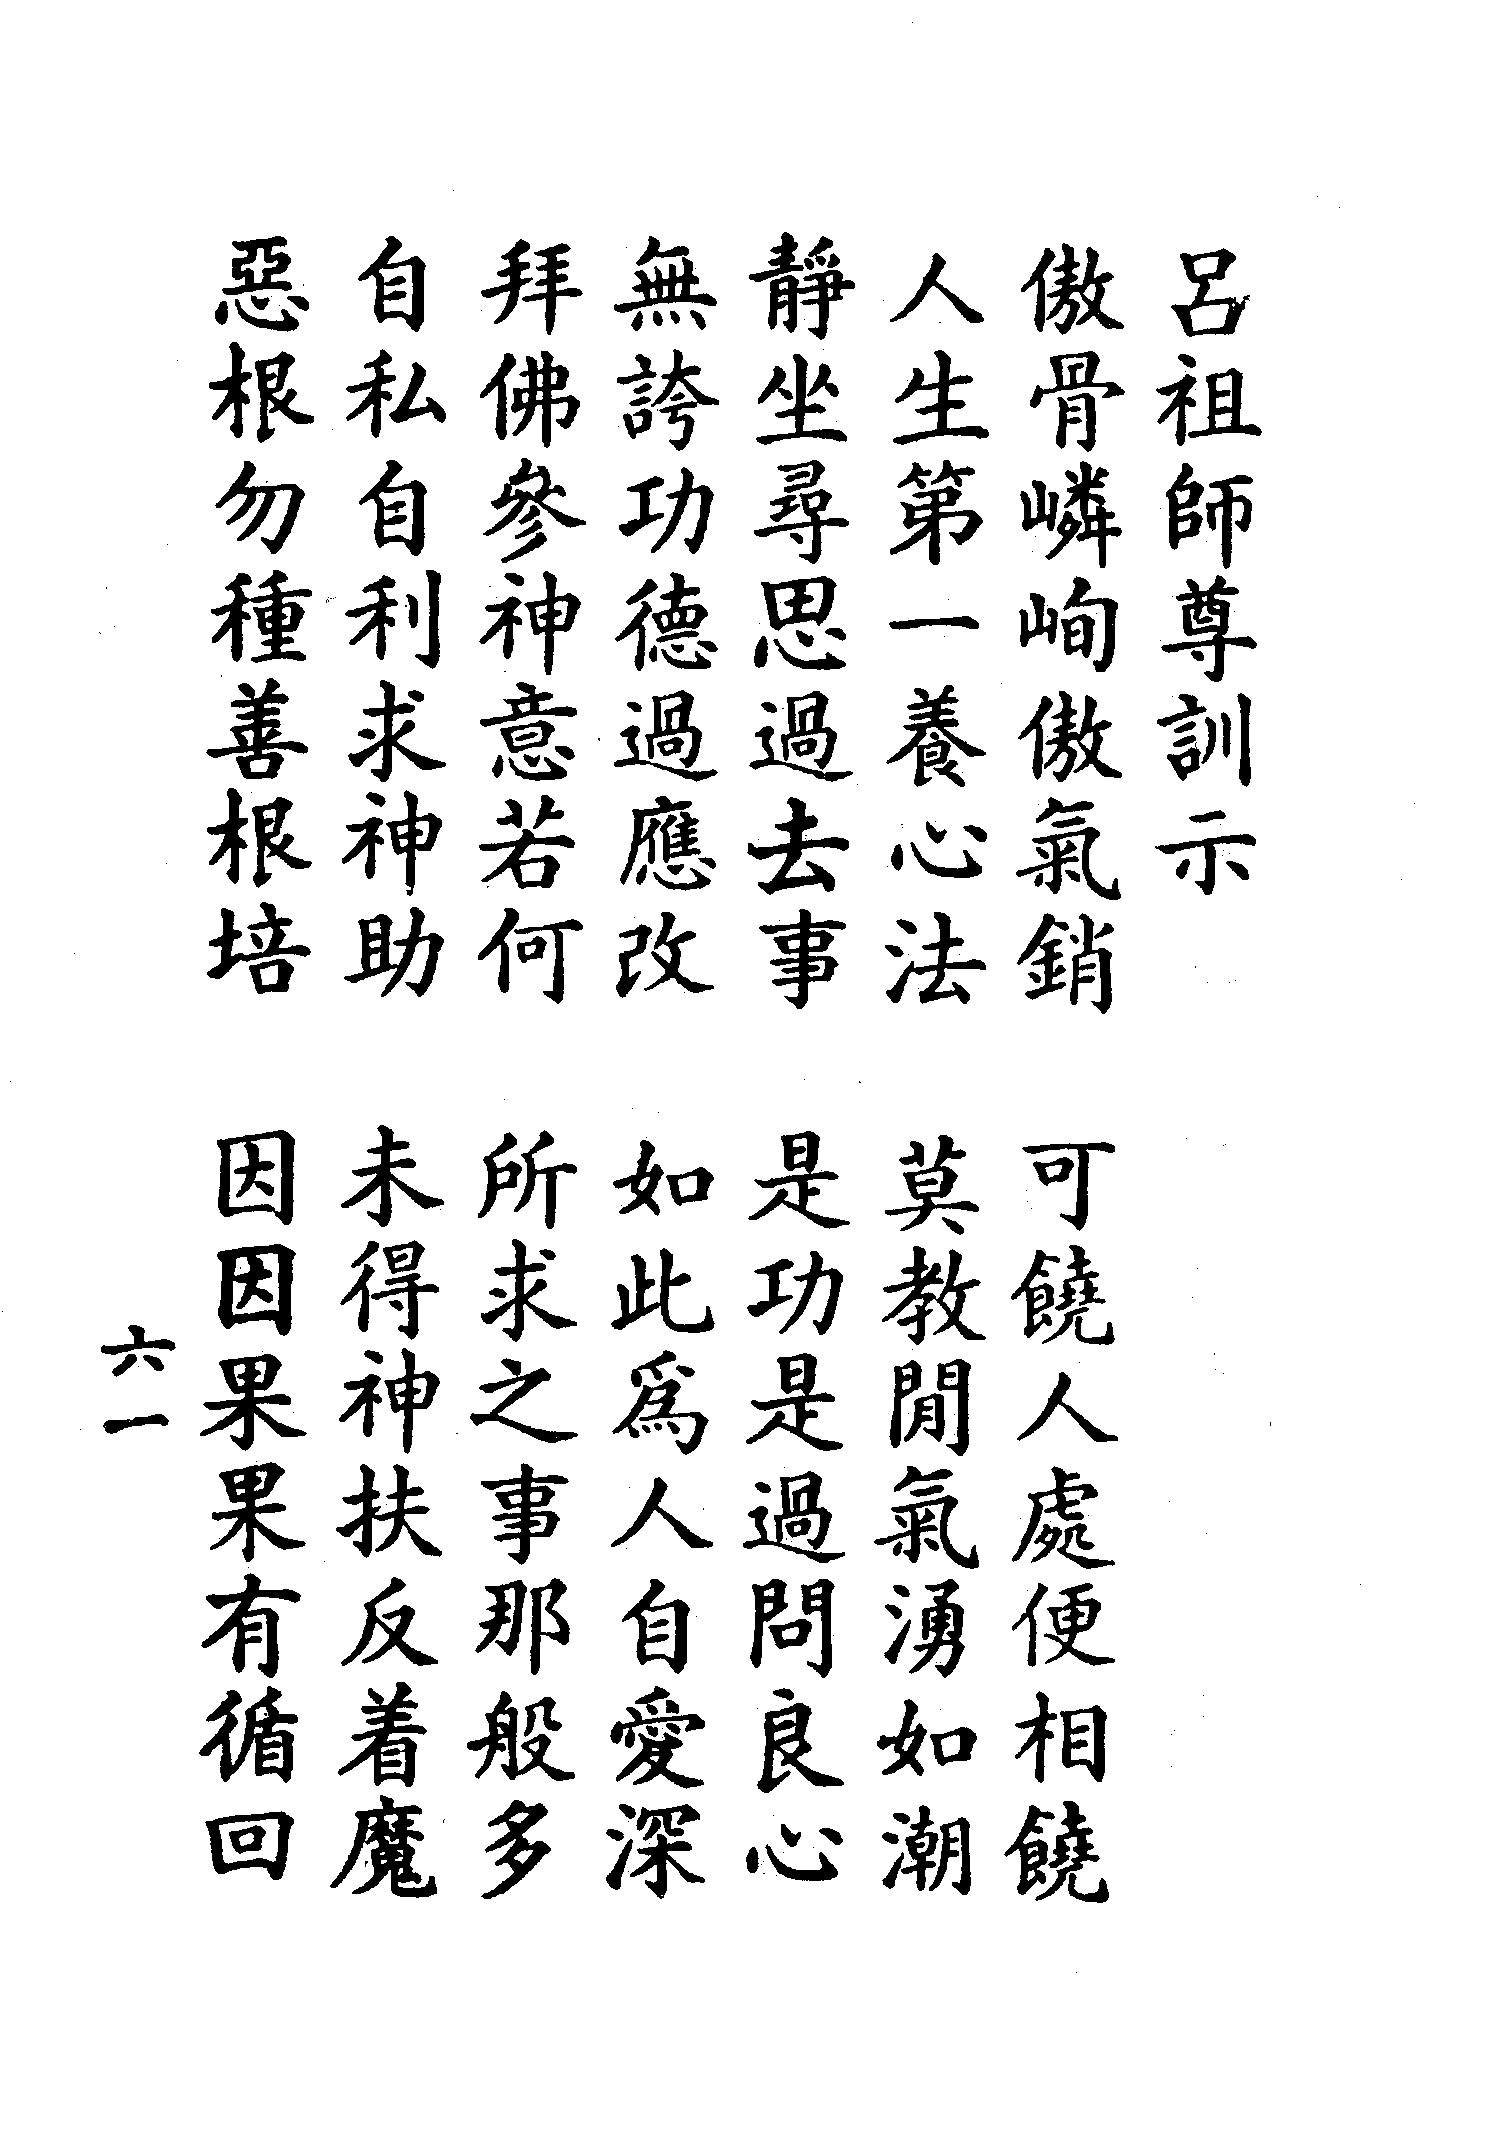 呂祖師尊訓示
傲骨嶙峋傲氣銷　可饒人處便相饒
人生第一養心法　莫教閒氣湧如潮
靜坐尋思過去事　是功是過問良心
無誇功德過應改　如此為人自愛深
拜佛參神意若何　所求之事那般多
自私自利求神助　未得神扶反着魔
惡根勿種善根培　因因果果有循回
六一